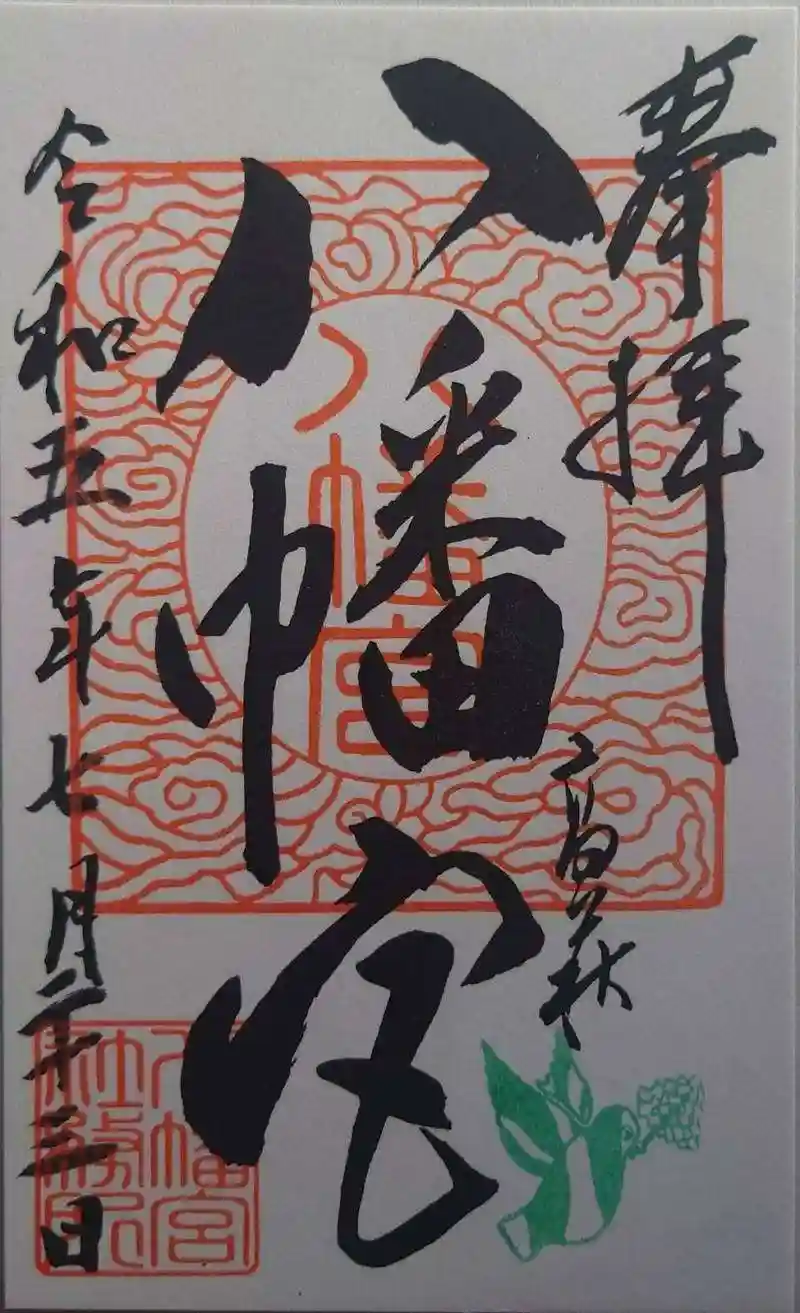 奉拝
高萩
八幡宮
八幡宮
令和五年七月二十三日
八幡宮
社務所